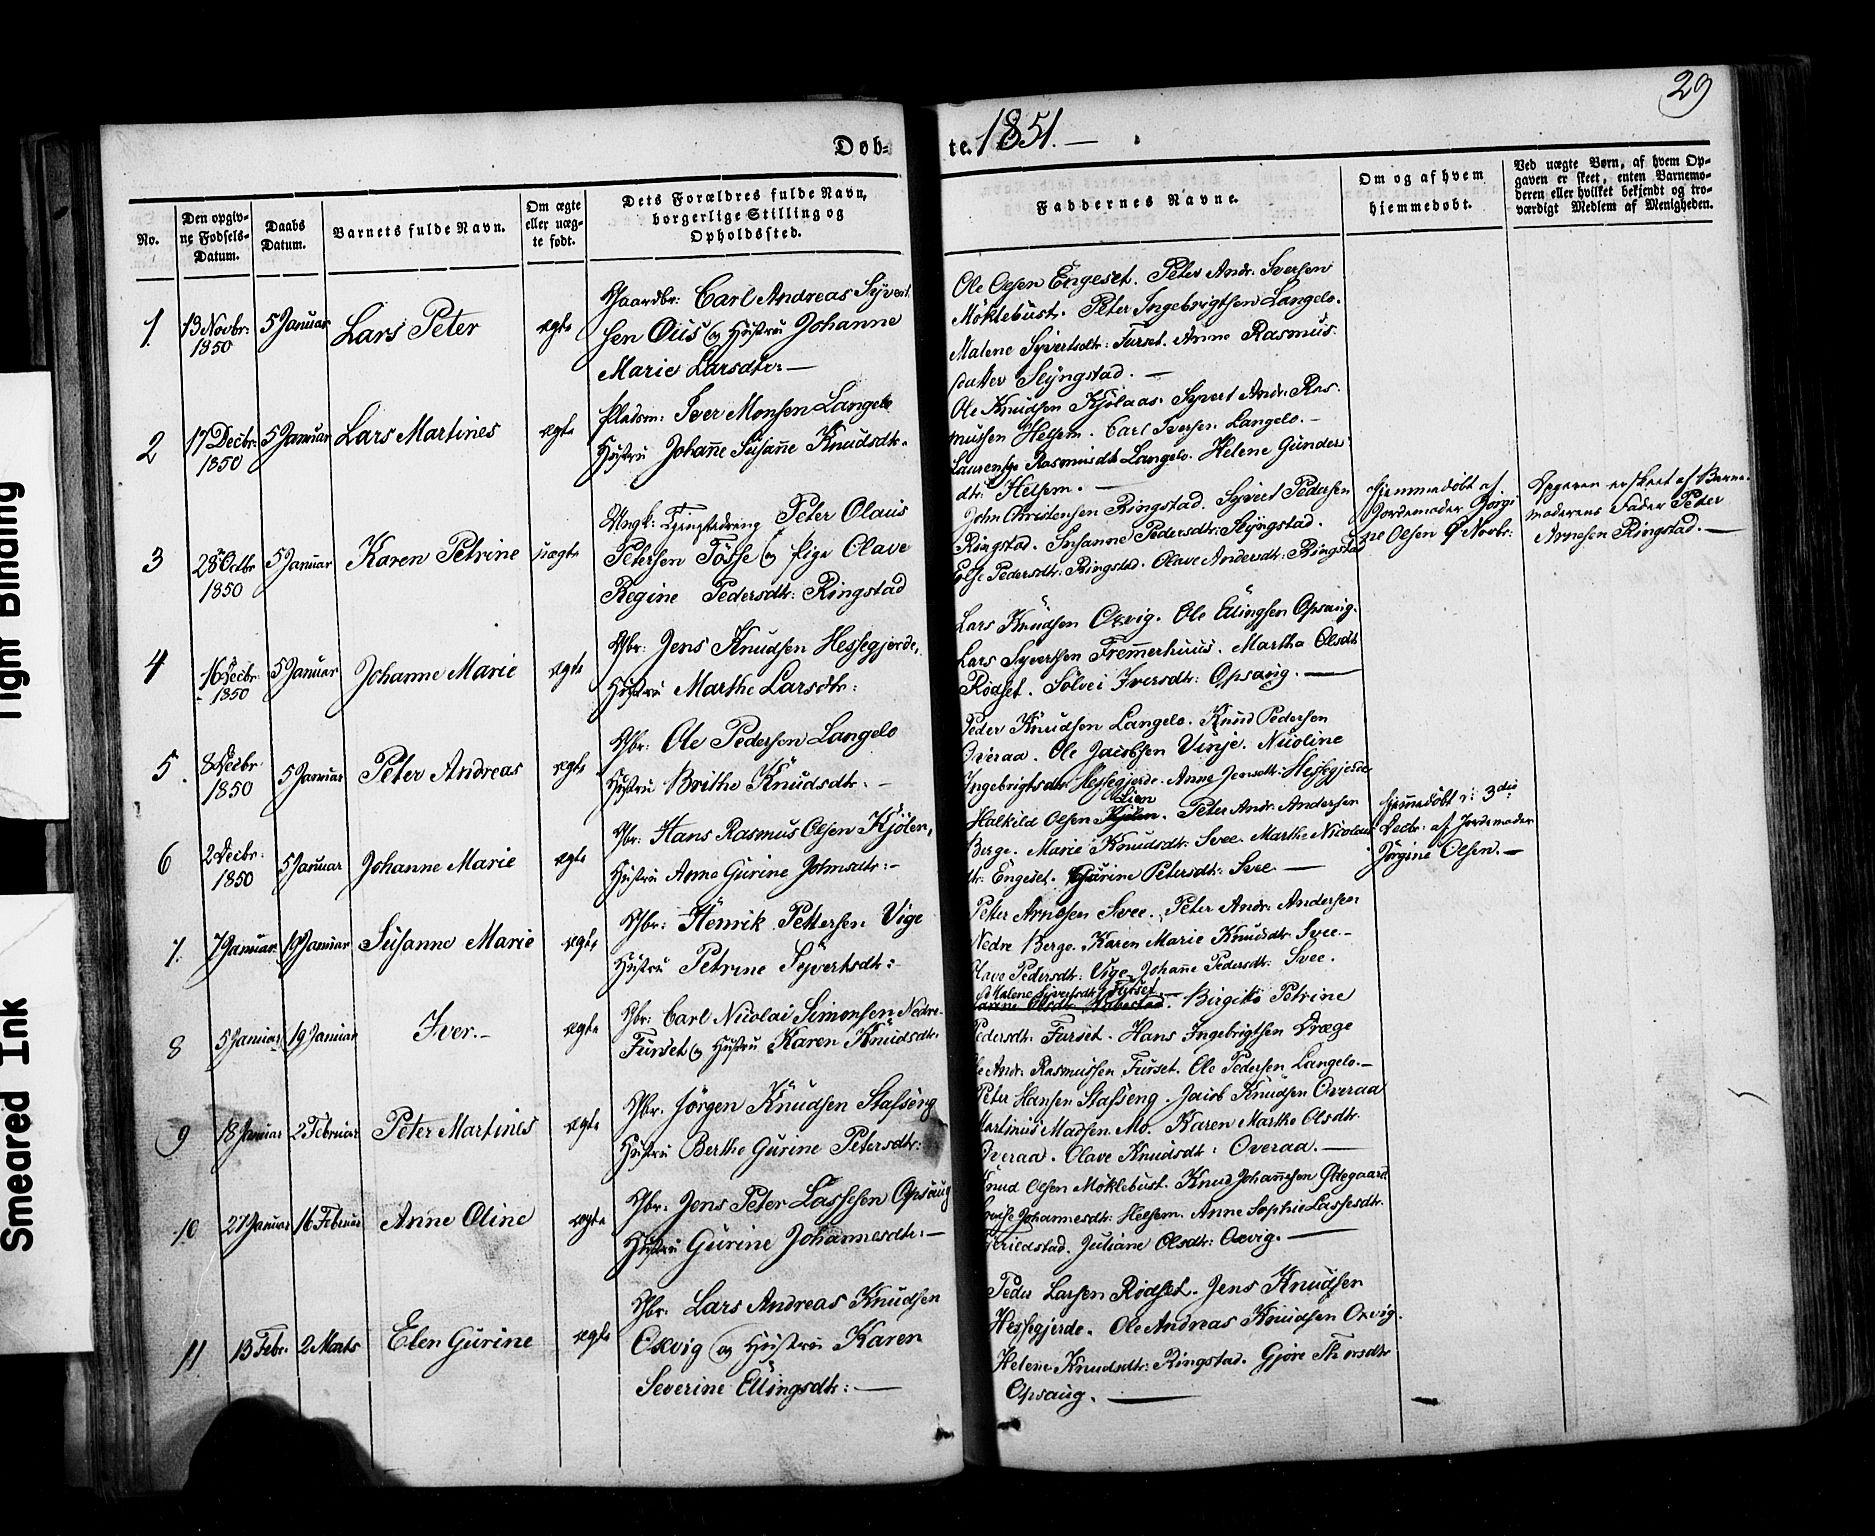 29
Døb-
te. 1851. —
No.
Den opgiv-
ne Fødsels-
Datum.
Daabs
Datum.
Barnets fulde Navn.
Om ægte
eller uæg-
te født.
Dets Forældres fulde Navn,
borgerlige Stilling og
Opholdssted.
Faddernes Navne.
Om og af hvem
hjemmedøbt.
Ved uægte Børn, af hvem Op-
gaven er skeet, enten Barnemo-
deren eller hvilket bekjendt og tro-
værdigt Medlem af Menigheden.
1. 13 Novbr: 5 Januar Lars Peter ægte
1850
Gaardbr: Carl Andreas Syvert
sen Öiis og Hustru Johanne
Marie Larsdtr: —
Ole Olsen Engeset. Peter Andr: Iversen
Möklebust. Peter Ingebrigtsen Langelo.
Malene Syvertsdtr: Furset. Anne Rasmus
datter Slyngstad. —
2 17 Decbr: 5 Januar Lars Martines ægte
1850
Pladsm: Iver Monsen Langelo
Hustru Johañe Susañe Knudsdtr.
Ole Knudsen Kjölaas. Syvert Andr: Ras
mussen Helsem. Carl Iversen Langelo. —
Laurentse Rasmusdtr Langelo. Helene Gunders
dtr: Helsem. —
3 28 Octbr 5 Januar Karen Petrine uægte
1850
Ungk: Peter Olaus
Petersen Tösse og Pige Olave
Regine Pedersdtr: Ringstad
John Christensen Ringstad. Syvert Pedersen
Ringstad. Susanne Pedersdtr: Slyngstad.
Pedersdtr: Ringstad. Olave Andersdtr: Ringstad
Hjemmedøbt af
Jordemoder Jörgi
ne Olsen Novbr:
Opgaven er skeet af Barne
moderens Fader Peter
Arnesen Ringstad. —
4 16 Decbr 5 Januar Johanne Marie ægte
1850
Gbr: Jens Knudsen Hessegjerde,
Hustru Marthe Larsdtr:
Lars Knudsen Oxvig. Ole Ellingsen Opsaug.
Lars Syvertsen Fremerhuus. Martha Olsdtr
Rödset. Solvei Iversdtr: Opsaug. —
5. 8 Decbr 5 Januar Peter Andreas ægte
1850
Gbr: Ole Pedersen Langelo
Hustru Brithe Knudsdtr. —
Peder Knudsen Langelo. Knud Pedersen
Overaa. Ole Jacobsen Vinje. Nicoline
Ingebrigtsdtr Hessegjerde. Anne Jensdtr: Hessegjerde
6 2 Decbr: 5 Januar Johanne Marie ægte
1850
Gbr: Hans Rasmus Olsen Kjölen,
Hustru Anne Gurine Johnsdtr: —
Lien
Halkild Olsen Kjölen. Peter Andr: Andersen
Berge. Marie Knudsdtr: Svee. Marthe Nicolai
dtr: Engeset. Gurine Petersdtr: Svee —
Hjemmedøbt d: 3die
Decbr: af Jordemoder
Jörgine Olsen. —
7. 7 Januar 19 Januar Susanne Marie ægte
Gbr: Henrik Pettersen Vige
Hustru Petrine Syvertsdtr: —
Peter Arnesen Svee. Peter Andr: Andersen
Nedre Berge. Karen Marie Knudsdtr Svee. —
Olave Pedersdtr: Vige. Johañe Pedersdtr: Svee.
8 5 Januar 19 Januar Iver. — ægte
Gbr: Carl Nicolai Simonsen Nedre
Furset og Hustru Karen Knudsdtr:
Malene Syvertsdtr Furset
Olsdtr. Birgitte Petrine
Pedersdtr: Furset. Hans Ingebrigtsen Dræge
Ole Andr: Rasmussen Furset. Ole Pedersen Langelo. —
9 18 Januar 2 Februar Peter Martines ægte
Gbr. Jörgen Knudsen Stafseng
Hustru Berthe Gurine Petersdtr:
Peter Hansen Stafseng. Jacob Knudsen Overaa
Martinus Madsen Mo. Karen Marthe Olsdtr:
Overaa. Olave Knudsdtr: Overaa. —
10 27 Januar 16 Februar Anne Oline ægte
Gbr. Jens Peter Lassesen Opsaug
Hustru Gurine Johannesdtr: —
Knud Olsen Möklebust. Knud Johañesen Ödegaard.
Johannesdtr: Helsem. Anne Sophie Lassesdtr:
Juliane Olsdtr: Oxvig. —
11 13 Febr. 2 Marts Elen Gurine ægte
Gbr. Lars Andreas Knudsen
Oxvig og Hustru Karen
Severine Ellingsdtr: —
Peder Larsen Rödset. Jens Knudsen
Hessegjerde. Ole Andreas Knudsen Oxvig.
Helene Knudsdtr: Ringstad. Gjöre Thorsdtr
Opsaug. —
Tight Binding
Smeared Ink